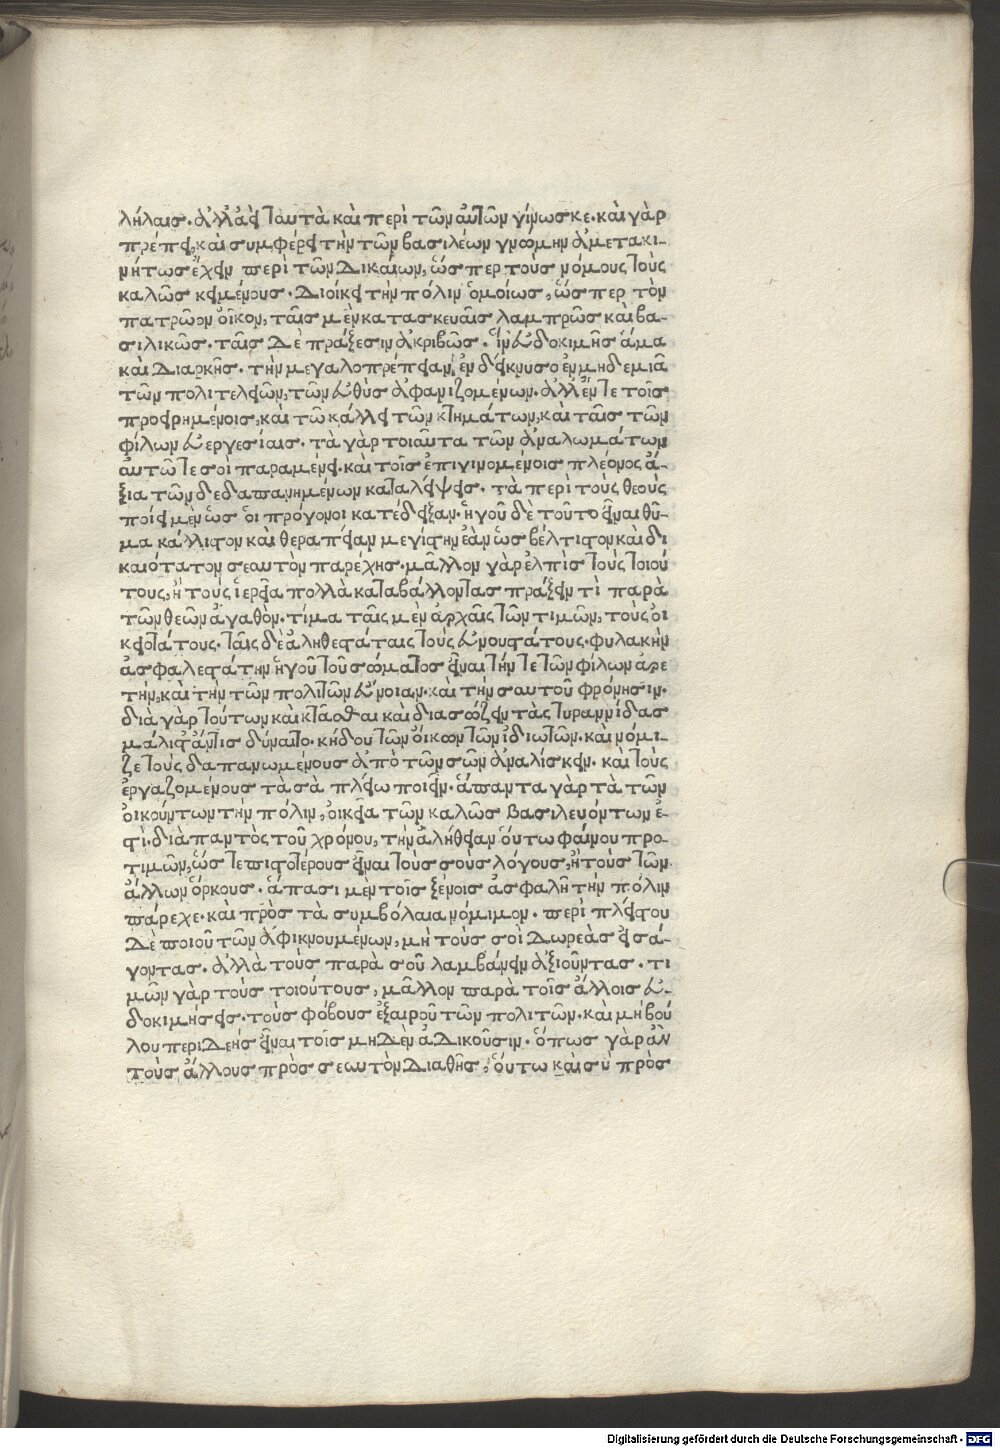 λήλαισ. ἀλλ᾽ ἀεὶ ταυτὰ καὶ περὶ τῶν αὐτῶν γίνωσκε. καὶ γὰρ
πρέπει, καὶ συμφέρει τὴν τῶν βασιλέων γνώμην ἀμετακι-
νήτωσ ἔχειν περὶ τῶν Δικαίων, ὥσπερ τοὺσ νόμουσ τοὺσ
καλῶσ κειμένουσ. Διοίκει τὴν πόλιν ὁμοίωσ, ὥσπερ τὸν
πατρῶον οἶκον, ταῖσ μὲν κατασκευαῖσ λαμπρῶσ καὶ βα-
σιλικῶσ. ταῖσ Δὲ πράξεσιν ἀκριβῶσ. ἵν᾽ εὐδοκιμῆσ ἅμα
καὶ Διαρκῆσ. τὴν μεγαλοπρέπειαν, ἐνδείκνυσο ἐν μηδεμιᾶ
τῶν πολιτελειῶν, τῶν εὐθὺσ ἀφανιζομένων. ἀλλ᾽ ἔν τε τοῖσ
προειρημένοισ, καὶ τῶ κάλλει τῶν κτημάτων, καὶ ταῖσ τῶν
φίλων εὐεργεσίαισ. τὰ γὰρ τοιαῦτα τῶν ἀναλωμάτων
αὐτῶ τε σοὶ παραμένει. καὶ τοῖσ ἐπιγινομένοισ πλέονοσ ἄ-
ξια τῶν δεδαπανημένων καταλείψεισ. τὰ περὶ τοὺσ θεοὺσ
ποίει μὲν ὡσ οἱ πρόγονοι κατέδειξαν. ἡγοῦ δὲ τοῦτο εἶναι θῦ-
μα κάλλιστον καὶ θεραπείαν μεγίστην ἐὰν ὡσ βέλτιστον καὶ δι
καιότατον σεαυτὸν παρέχησ. μᾶλλον γὰρ ἐλπὶσ τοὺσ τοιού
τουσ, ἢ τοὺσ ἱερεῖα πολλὰ καταβάλλοντασ πράξειν τὶ παρὰ
τῶν θεῶν ἀγαθὸν. τίμα ταῖσ μὲν ἀρχαῖσ τῶν τιμῶν, τοὺσ οἰ
κειοτάτουσ. ταῖσ δὲ ἀληθεστάταισ τοὺσ εὐνουστάτουσ. φυλακὴν
ἀσφαλεστάτην ἡγοῦ τοῦ σώματοσ εἶναι τήν τε τῶν φίλων ἀρε
τὴν, καὶ τὴν τῶν πολιτῶν εὔνοιαν. καὶ τὴν σαυτοῦ φρόνησιν.
διὰ γὰρ τούτων καὶ κτᾶσθαι καὶ διασώζειν τὰσ τυραννίδασ
μάλιστ᾽ ἄν τισ δύναιτο. κήδου τῶν οἴκων τῶν ἰδιωτῶν. καὶ νόμι-
ζε τοὺσ δαπανωμένουσ ἀπὸ τῶν σῶν ἀναλίσκειν. καὶ τοὺσ
ἐργαζομένουσ τὰ σὰ πλείω ποιεῖν. ἅπαντα γὰρ τὰ τῶν
οἰκούντων τὴν πόλιν, οἰκεῖα τῶν καλῶσ βασιλευόντων ἐ-
στὶ. διὰ παντὸσ τοῦ χρόνου, τὴν ἀλήθειαν οὕτω φαίνου προ-
τιμῶν, ὥσ τε πιστοτέρουσ εἶναι τοὺσ σοὺσ λόγουσ, ἢ τοὺσ τῶν
ἄλλων ὅρκουσ. ἅπασι μὲν τοῖσ ξένοισ ἀσφαλῆ τὴν πόλιν
πάρεχε. καὶ πρὸσ τὰ συμβόλαια νόμιμον. περὶ πλείστου
Δὲ ποιοῦ τῶν ἀφικνουμένων, μὴ τοὺσ σοὶ Δωρεὰσ εἰσά-
γοντασ. ἀλλὰ τοὺσ παρὰ σοῦ λαμβάνειν ἀξιοῦντασ. τι
μῶν γὰρ τοὺσ τοιούτουσ, μᾶλλον παρὰ τοῖσ ἄλλοισ εὐ-
δοκιμήσεισ. τοὺσ φόβουσ ἐξαιροῦ τῶν πολιτῶν. καὶ μὴ βού
λου περιΔεὴσ εἶναι τοῖσ μηΔὲν ἀΔικοῦσιν. ὅπωσ γὰρ ἂν
τοὺσ ἄλλουσ πρὸσ σεαυτὸν Διαθῆσ, οὕτω καὶ σὺ πρὸσ
Digitalisierung gefördert durch die Deutsche Forschungsgemeinschaft - DFG